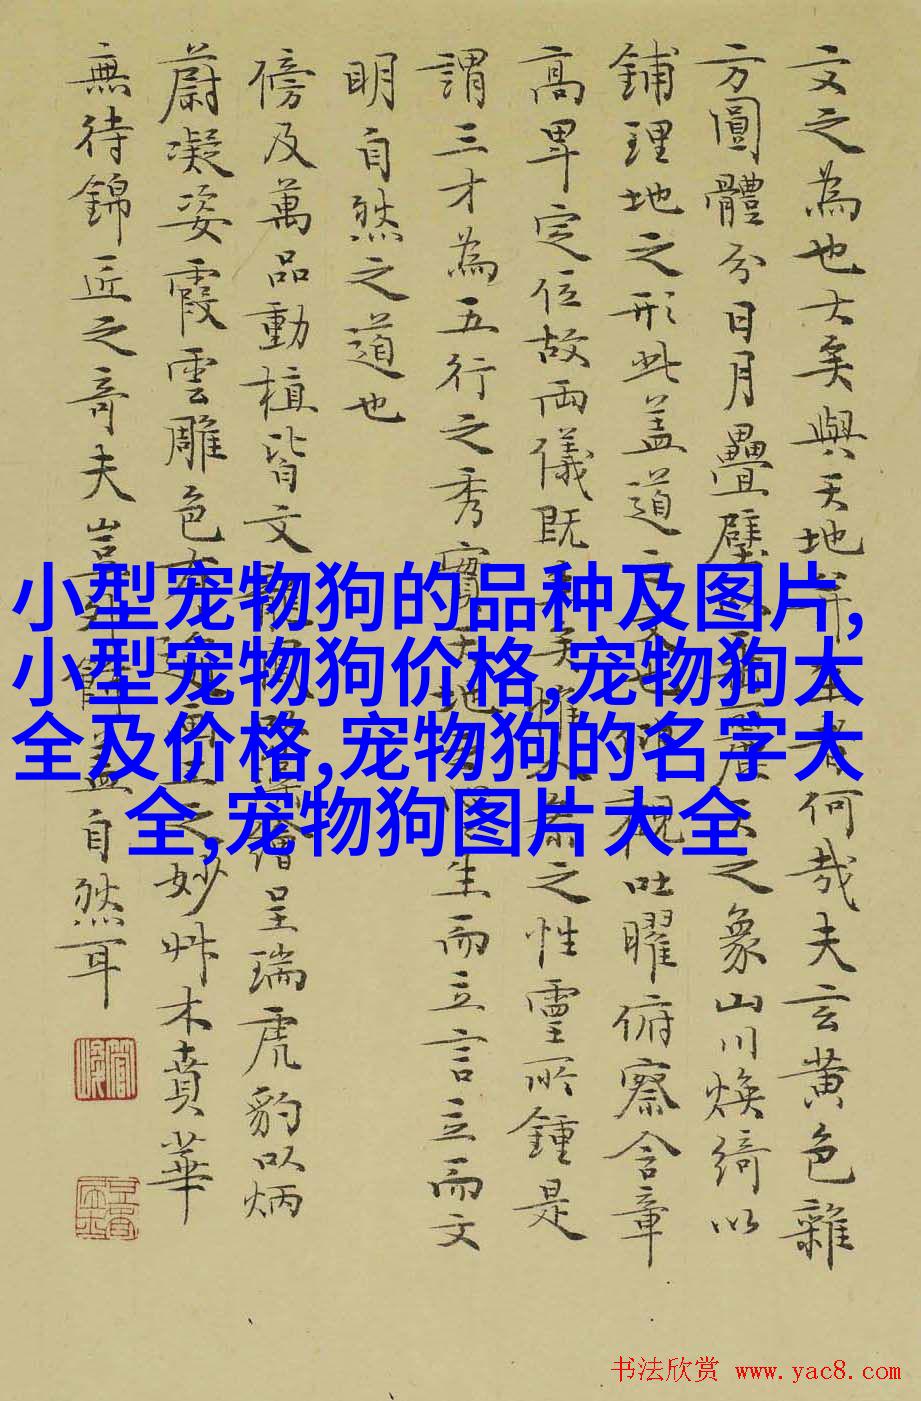 文之為也大矣與天地并生者何哉夫玄黄色雜
方圓體分日月疊璧垂麗天之象山川煥綺以
鋪理地之形此盖道之文也仰觀吐曜俯察含章
高卑定位故兩儀既生矣惟人參之性靈所鍾是
謂三才為五行之秀實天地心生而立言立而文
明自然之道也
傍及萬品動植皆文龍鳳藻繪呈瑞虎豹以炳
蔚凝姿霞雲雕色有逾畫工之妙艸木賁華
無待錦匠之奇夫豈外飾盖自然耳
小型宠物狗的品种及图片,
小型宠物狗价格,宠物狗大
全及价格,宠物狗的名字大
全,宠物狗图片大全
书法欣赏 www.yac8.com